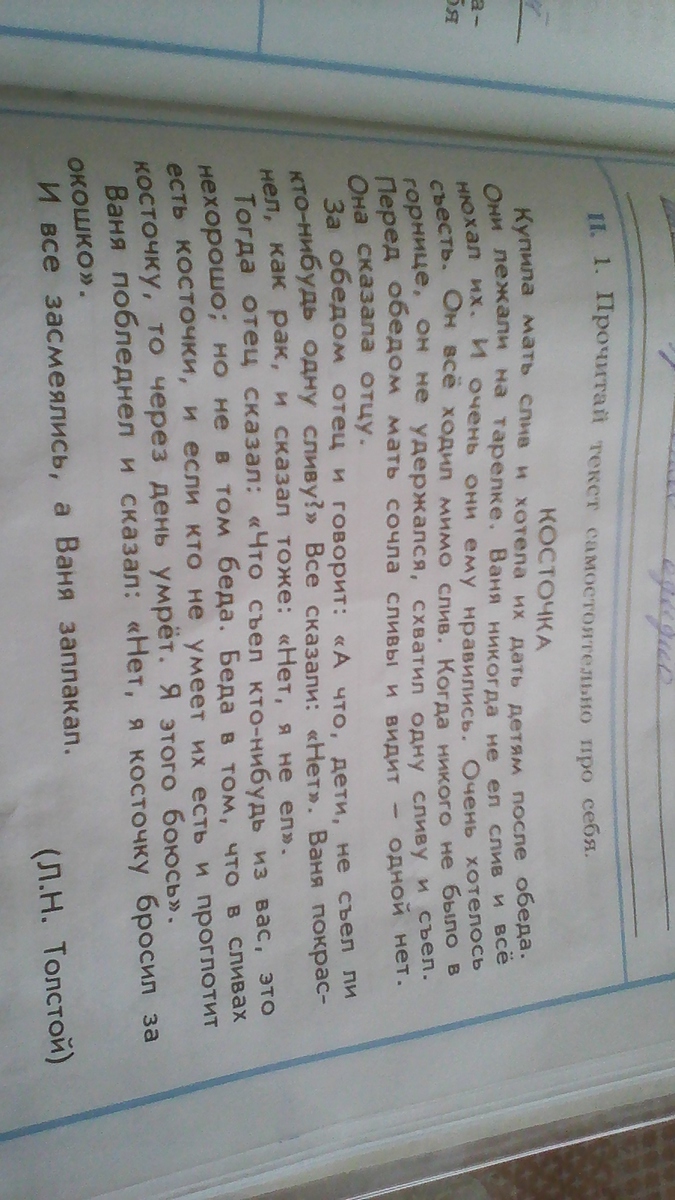 а-
бя
II. 1. Прочитай текст самостоятельно про себя.
КОСТОЧКА
Купила мать слив и хотела их дать детям после обеда.
Они лежали на тарелке. Ваня никогда не ел слив и всё
нюхал их. И очень они ему нравились. Очень хотелось
съесть. Он всё ходил мимо слив. Когда никого не было в
горнице, он не удержался, схватил одну сливу и съел.
Перед обедом мать сочла сливы и видит – одной нет.
Она сказала отцу.
За обедом отец и говорит: «А что, дети, не съел ли
кто-нибудь одну сливу?» Все сказали: «Нет». Ваня покрас-
нел, как рак, и сказал тоже: «Нет, я не ел».
Тогда отец сказал: «Что съел кто-нибудь из вас, это
нехорошо; но не в том беда. Беда в том, что в сливах
есть косточки, и если кто не умеет их есть и проглотит
косточку, то через день умрёт. Я этого боюсь».
Ваня побледнел и сказал: «Нет, я косточку бросил за
окошко».
И все засмеялись, а Ваня заплакал.
(Л.Н. Толстой)